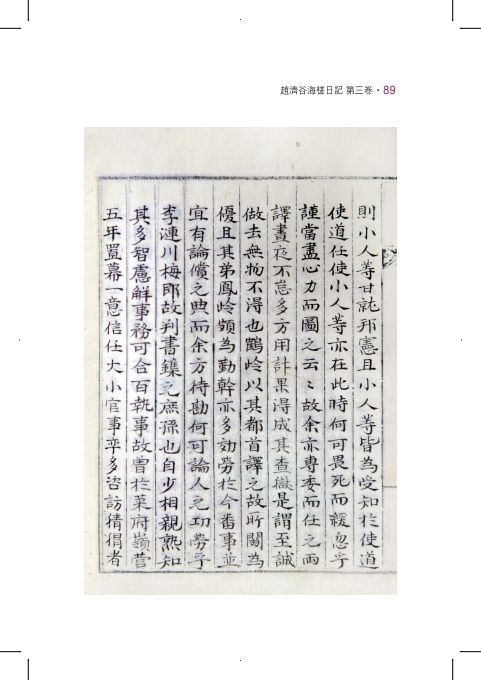 趙濟谷海槎日記 第三卷 · 89
則小人等甘就邦憲且小人等皆為受知於使道
使道任使小人等亦在此時何可畏死而緩忽乎
謹當盡心力而圖之云云故余亦專委而任之兩
譯晝夜不怠多方用計果得成其查獄是謂至誠
做去無物不得也鶴岭以其都首譯之故所關為
優且其弟鳳岭領為勤幹亦多効勞於今番事並
宜有論償之典而余方待勘何可論人之功勞乎
李漣川梅即故判書鏶之庶孫也自少相親熟知
其多智慮鮮事務可合百執事故曾於菜府嶺營
五年置幕一意信任大小官事卒多咨訪猜狷者